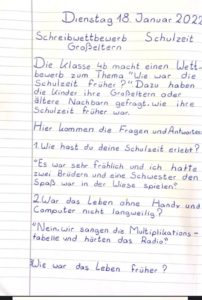 Dienstag 18. Januar 2022
Schreibwettbewerb Schulzeit
Großeltern
Die Klasse 4b macht einen Wett-
bewerb zum Thema "Wie war die
Schulzeit früher?" Dazu haben
die Kinder ihre Großeltern oder
ältere Nachbarn gefragt, wie ihre
Schulzeit früher war.
Hier kommen die Fragen und Antworten
1. Wie hast du deine Schulzeit erlebt?
"Es war sehr fröhlich und ich hatte
zwei Brüdern und eine Schwester den
Spaß war in der Wiese spielen"
2. War das Leben ohne Handy und
Computer nicht langweilig?
"Nein, wir sangen die Multiplikations-
tabelle und hörten das Radio"
3. Wie war das Leben früher?